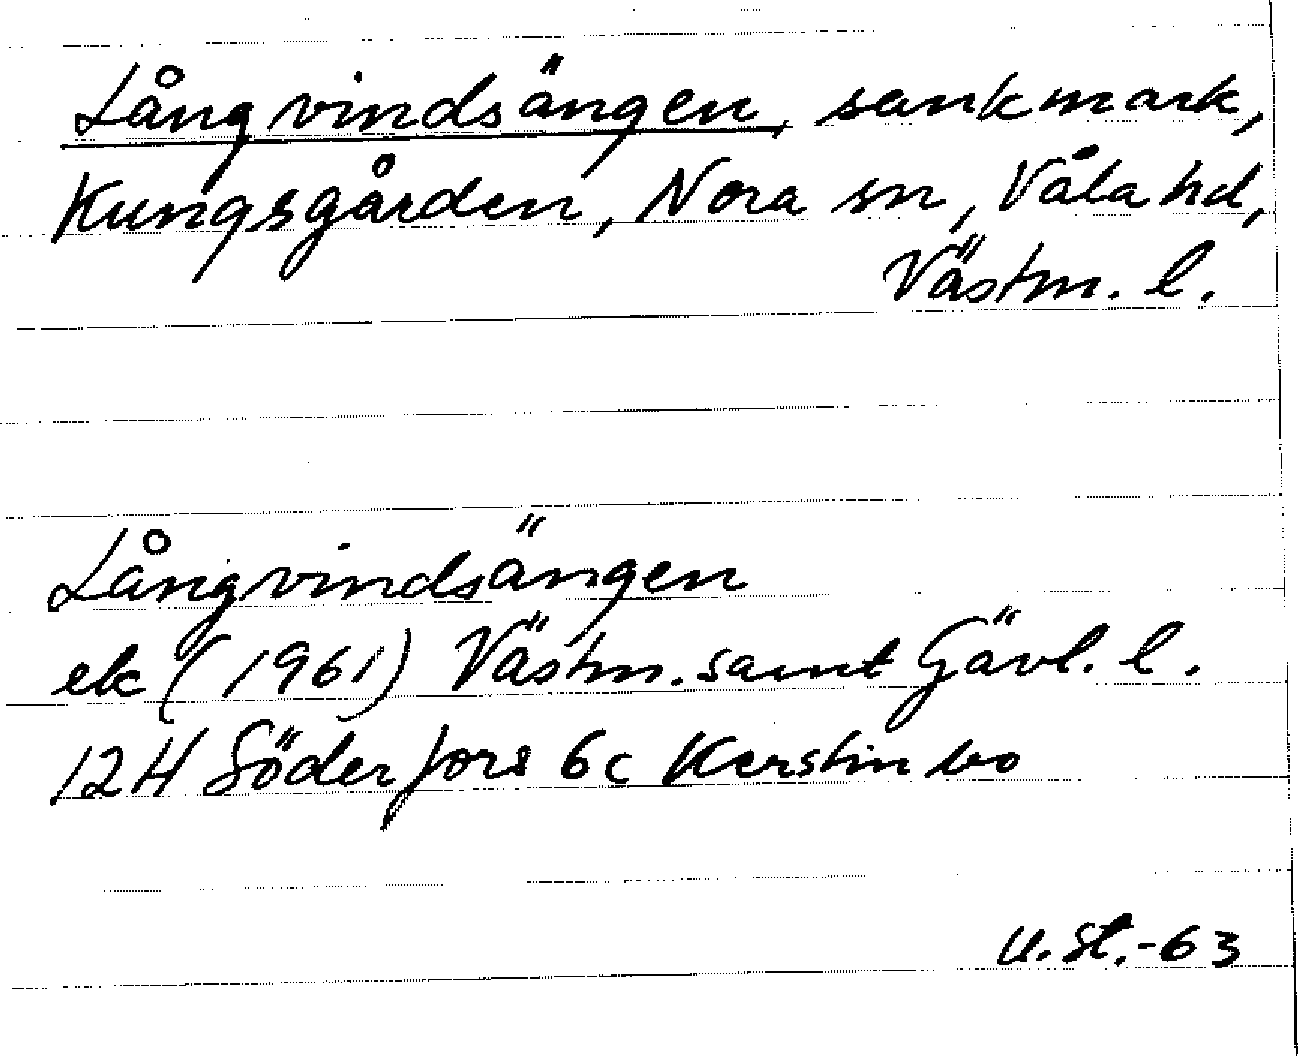 Långvindsängen, sankmark,
Kungsgården, Nora sn, Våla hd,
Västm. l.
Långvindsängen
ek (1961) Västm. samt Gävl. l.
12H Söderfors 6c Kerstinbo
U.St.-63